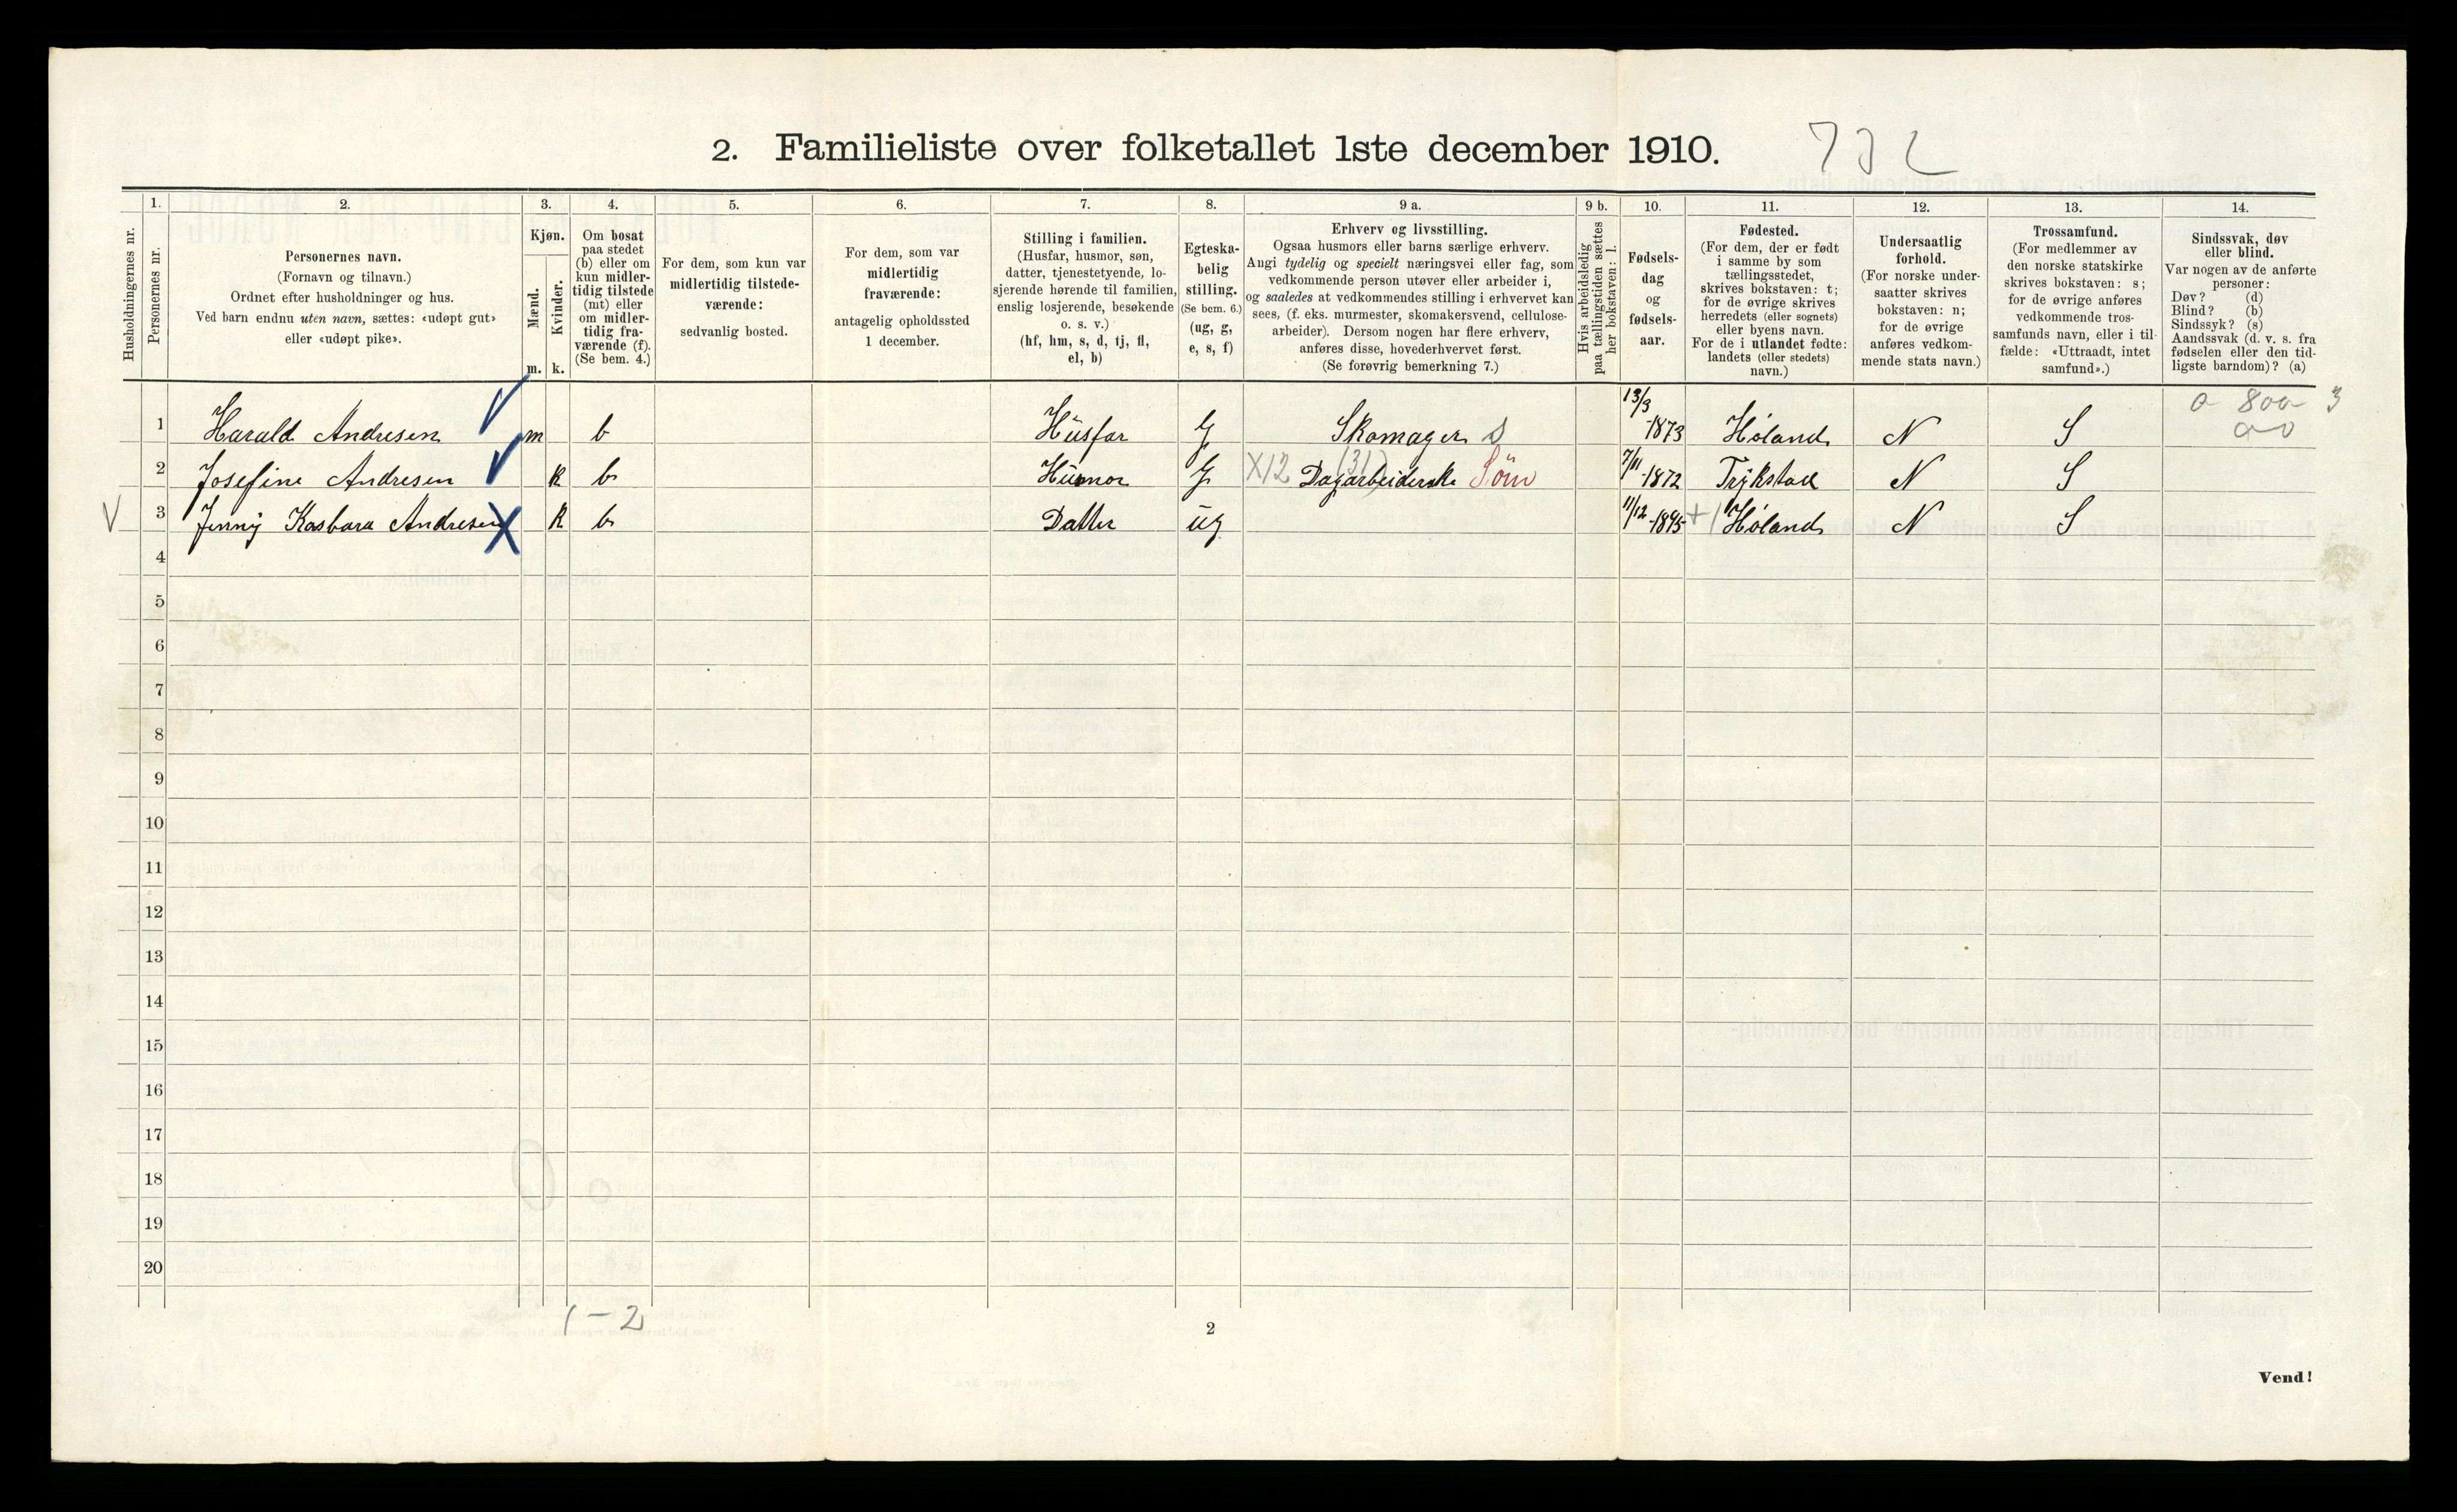 2. Familieliste over folketallet 1ste december 1910. 732
Husholdningernes nr.
1.
Personernes nr.
2.
Personernes navn.
(Fornavn og tilnavn.)
Ordnet efter husholdninger og hus.
Ved barn endnu uten navn, sættes: «udøpt gut»
eller «udøpt pike».
3.
Kjøn.
Mænd.
Kvinder.
m. k.
4.
Om bosat
paa stedet
(b) eller om
kun midler-
tidig tilstede
(mt) eller
om midler-
tidig fra-
værende (f).
(Se bem. 4.)
5.
For dem, som kun var
midlertidig tilstede-
værende:
sedvanlig bosted.
6.
For dem, som var
midlertidig
fraværende:
antagelig opholdssted
1 december.
7.
Stilling i familien.
(Husfar, husmor, søn,
datter, tjenestetyende, lo-
sjerende hørende til familien,
enslig losjerende, besøkende
o. s. v.)
(hf, hm, s, d, tj, fl,
el, b)
8.
Egteska-
belig
stilling.
(Se bem. 6.)
(ug, g,
e, s, f)
9 a.
Erhverv og livsstilling.
Ogsaa husmors eller barns særlige erhverv.
Angi tydelig og specielt næringsvei eller fag, som
vedkommende person utøver eller arbeider i,
og saaledes at vedkommendes stilling i erhvervet kan
sees, (f. eks. murmester, skomakersvend, cellulose-
arbeider). Dersom nogen har flere erhverv,
anføres disse, hovederhvervet først.
(Se forøvrig bemerkning 7.)
9 b.
Hvis arbeidsledig
paa tællingstiden sættes
her bokstaven: l.
10.
Fødsels-
dag
og
fødsels-
aar.
11.
Fødested.
(For dem, der er født
i samme by som
tællingsstedet,
skrives bokstaven: t;
for de øvrige skrives
herredets (eller sognets)
eller byens navn.
For de i utlandet fødte:
landets (eller stedets)
navn.)
12.
Undersaatlig
forhold.
(For norske under-
saatter skrives
bokstaven: n;
for de øvrige
anføres vedkom-
mende stats navn.)
13.
Trossamfund.
(For medlemmer av
den norske statskirke
skrives bokstaven: s;
for de øvrige anføres
vedkommende tros-
samfunds navn, eller i til-
fælde: «Uttraadt, intet
samfund».)
14.
Sindssvak, døv
eller blind.
Var nogen av de anførte
personer:
Døv? (d)
Blind? (b)
Sindssyk? (s)
Aandssvak (d. v. s. fra
fødselen eller den tid-
ligste barndom)? (a)
1 Harald Andresen m b Husfar G Skomager 13/3 -1873 Høland N S
2 Josefine Andresen k b Husmor G X12 (31) Dagarbeiderske Söm 7/11 -1872 Trykstad N S
V 3 Jenny Kasbara Andresen X k b Datter ug 11/12 -1895 Høland N S
4
5
6
7
8
9
10
11
12
13
14
15
16
17
18
19
20
1 – 2
2
Vend!